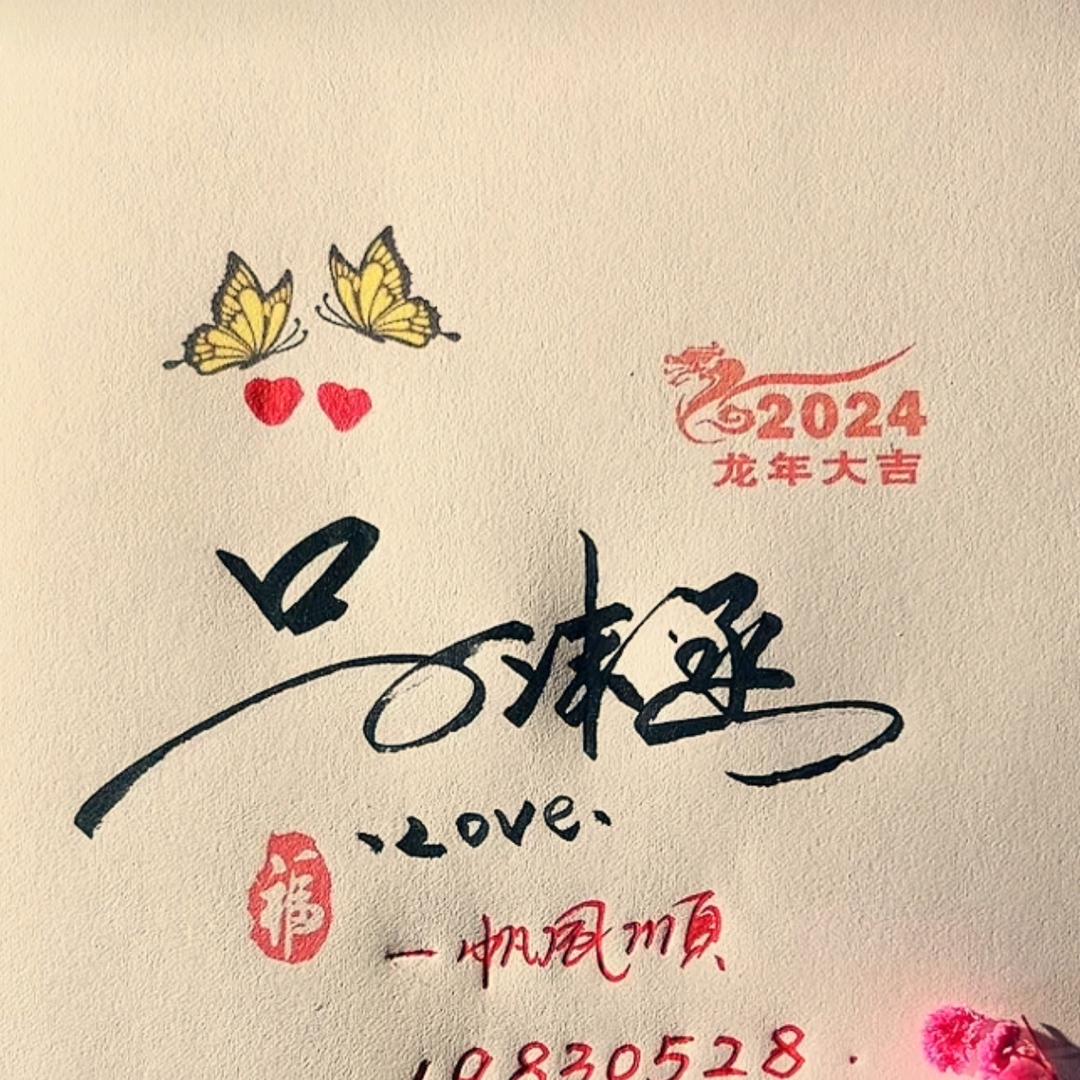 2024
龙年大吉
.Love.
福
一帆風順
19830528.